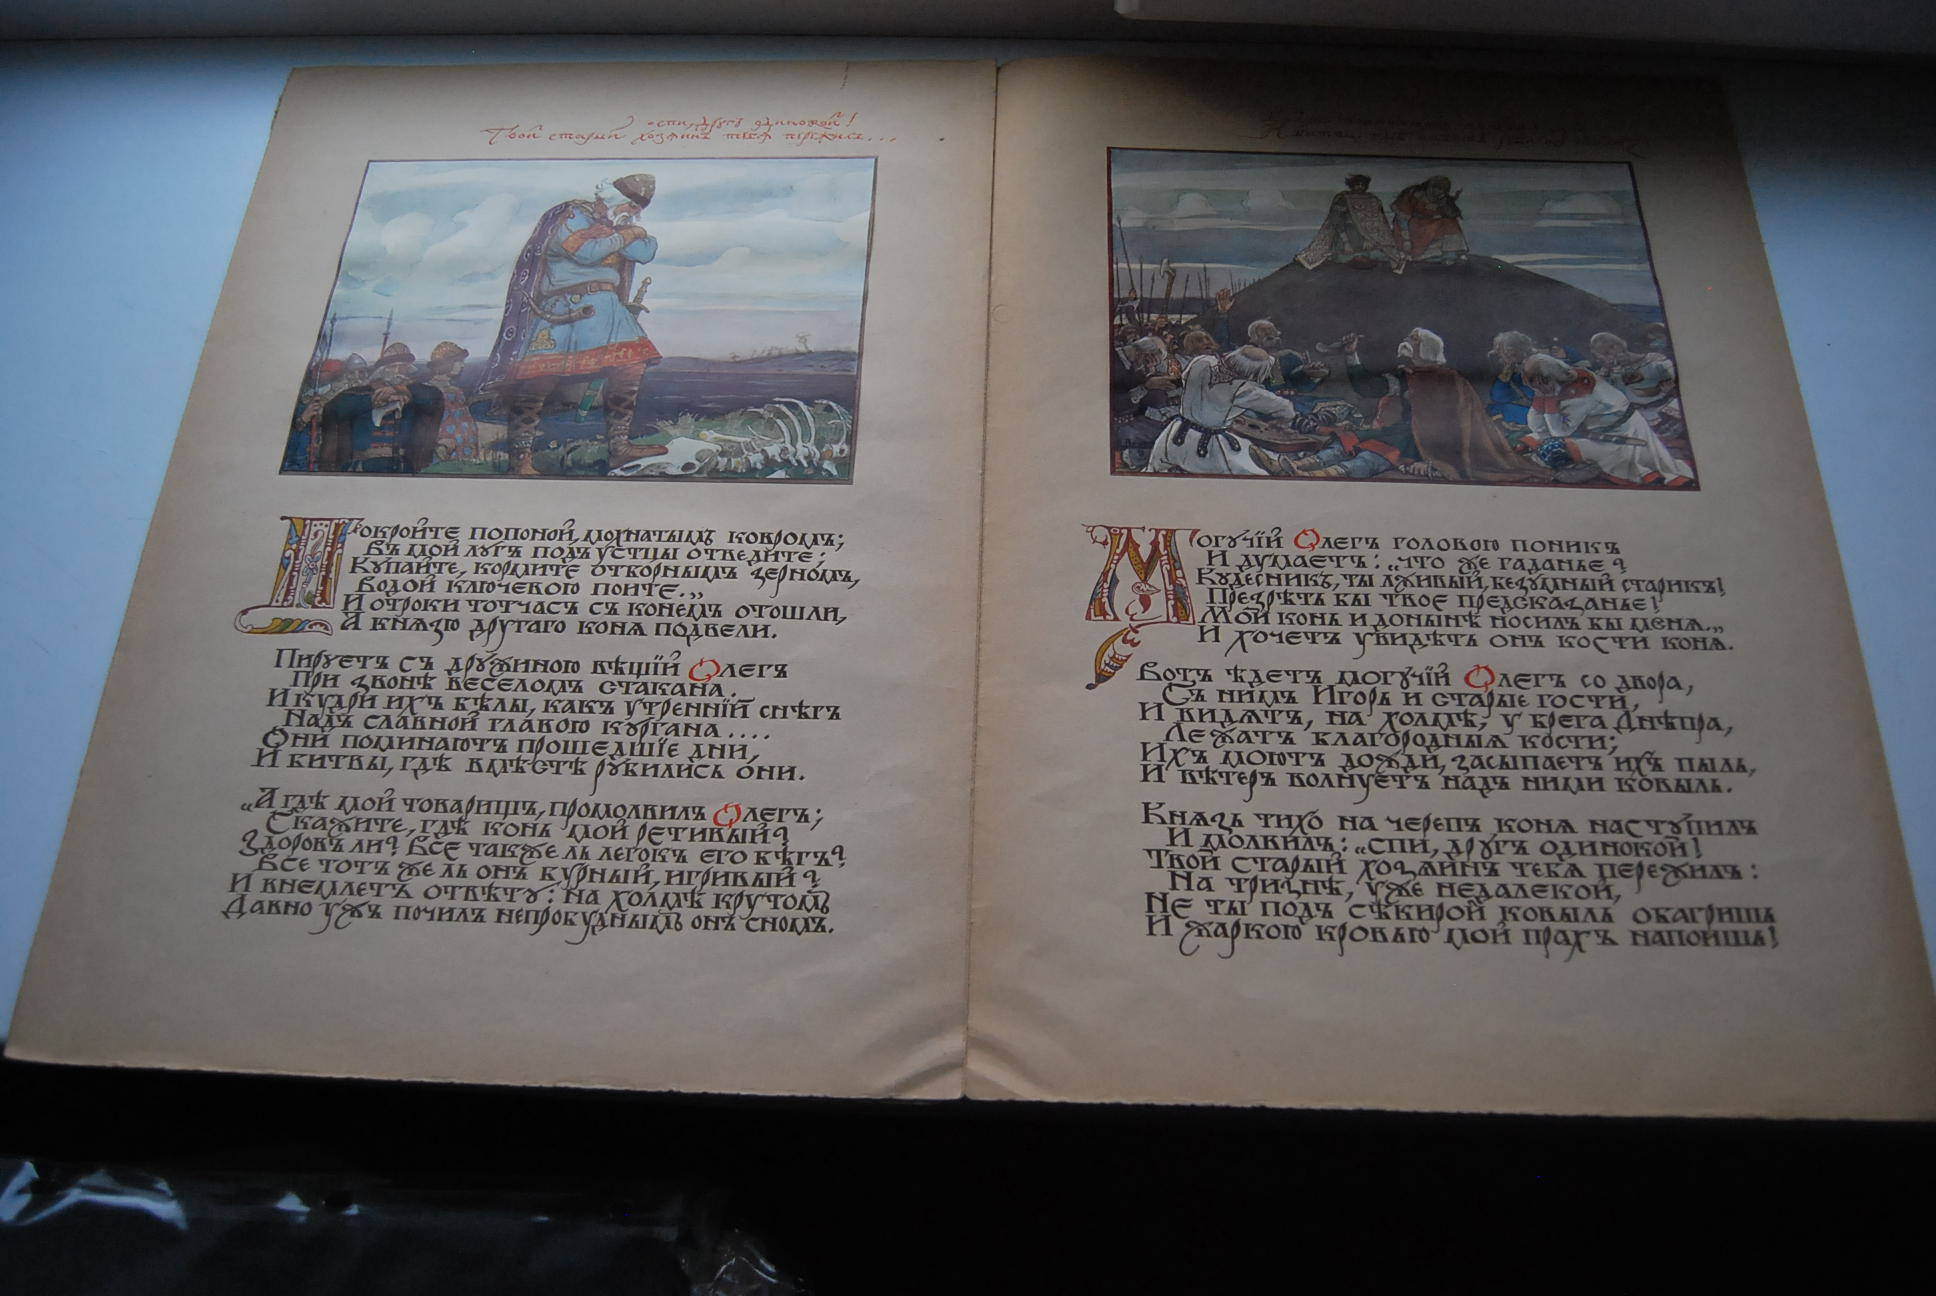 „спи, другъ одинокой!
Твой старый хозяинъ тебя пережилъ...
Покройте попоной, мохнатымъ ковромъ;
Въ мой лугъ подъ устцы отведите;
Купайте, кормите отборнымъ зерномъ,
Водой ключевою поите.„
И отроки тотчасъ съ конемъ отошли,
А князю другаго коня подвели.
Пируетъ съ дружиною вѣщій Олегъ
При звонѣ веселомъ стакана.
И кудри ихъ бѣлы, какъ утренній снѣгъ
Надъ славной главою кургана....
Они поминаютъ прошедшіе дни,
И битвы, гдѣ вмѣстѣ рубились они.
„А гдѣ мой товарищъ, промолвилъ Олегъ;
Скажите, гдѣ конь мой ретивый?
Здоровъ ли? Все такъже ль легокъ его бѣгъ?
Все тотъ же ль онъ бурный, игривый?
И внемлетъ отвѣту: на холмѣ крутомъ
Давно ужъ почилъ непробуднымъ онъ сномъ.
Могучій Олегъ головою поникъ
И думаетъ: „что же гаданье?
Кудесникъ, ты лживый, безумный старикъ!
Презрѣть бы твое предсказанье!
Мой конь и донынѣ носилъ бы меня.„
И хочетъ увидѣть онъ кости коня.
Вотъ ѣдетъ могучій Олегъ со двора,
Съ нимъ Игорь и старые гости,
И видятъ, на холмѣ, у брега Днѣпра,
Лежатъ благородныя кости;
Ихъ моютъ дожди, засыпаетъ ихъ пыль,
И вѣтеръ волнуетъ надъ ними ковыль.
Князь тихо на черепъ коня наступилъ
И молвилъ: „спи, другъ одинокой!
Твой старый хозяинъ тебя пережилъ:
На тризнѣ, уже недалекой,
Не ты подъ сѣкирой ковыль обагришь
И жаркою кровью мой прахъ напоишь!